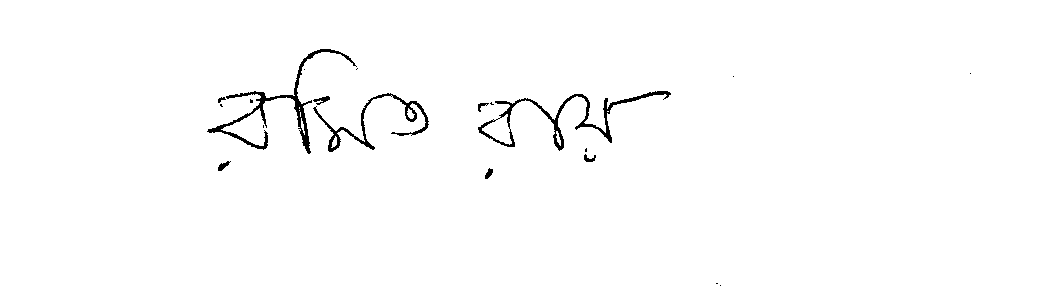 রমিত রায়